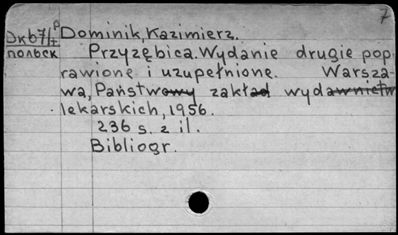 7
р
Dк67/+ Dominik, Kazimierz.
польск Przyzębica. Wydanie drugie pop
rawione i uzupełnione. Warsza-
wa, Państwowy zakład wydawnictw
lekarskich, 1956.
236 s. z il.
Bibliogr.